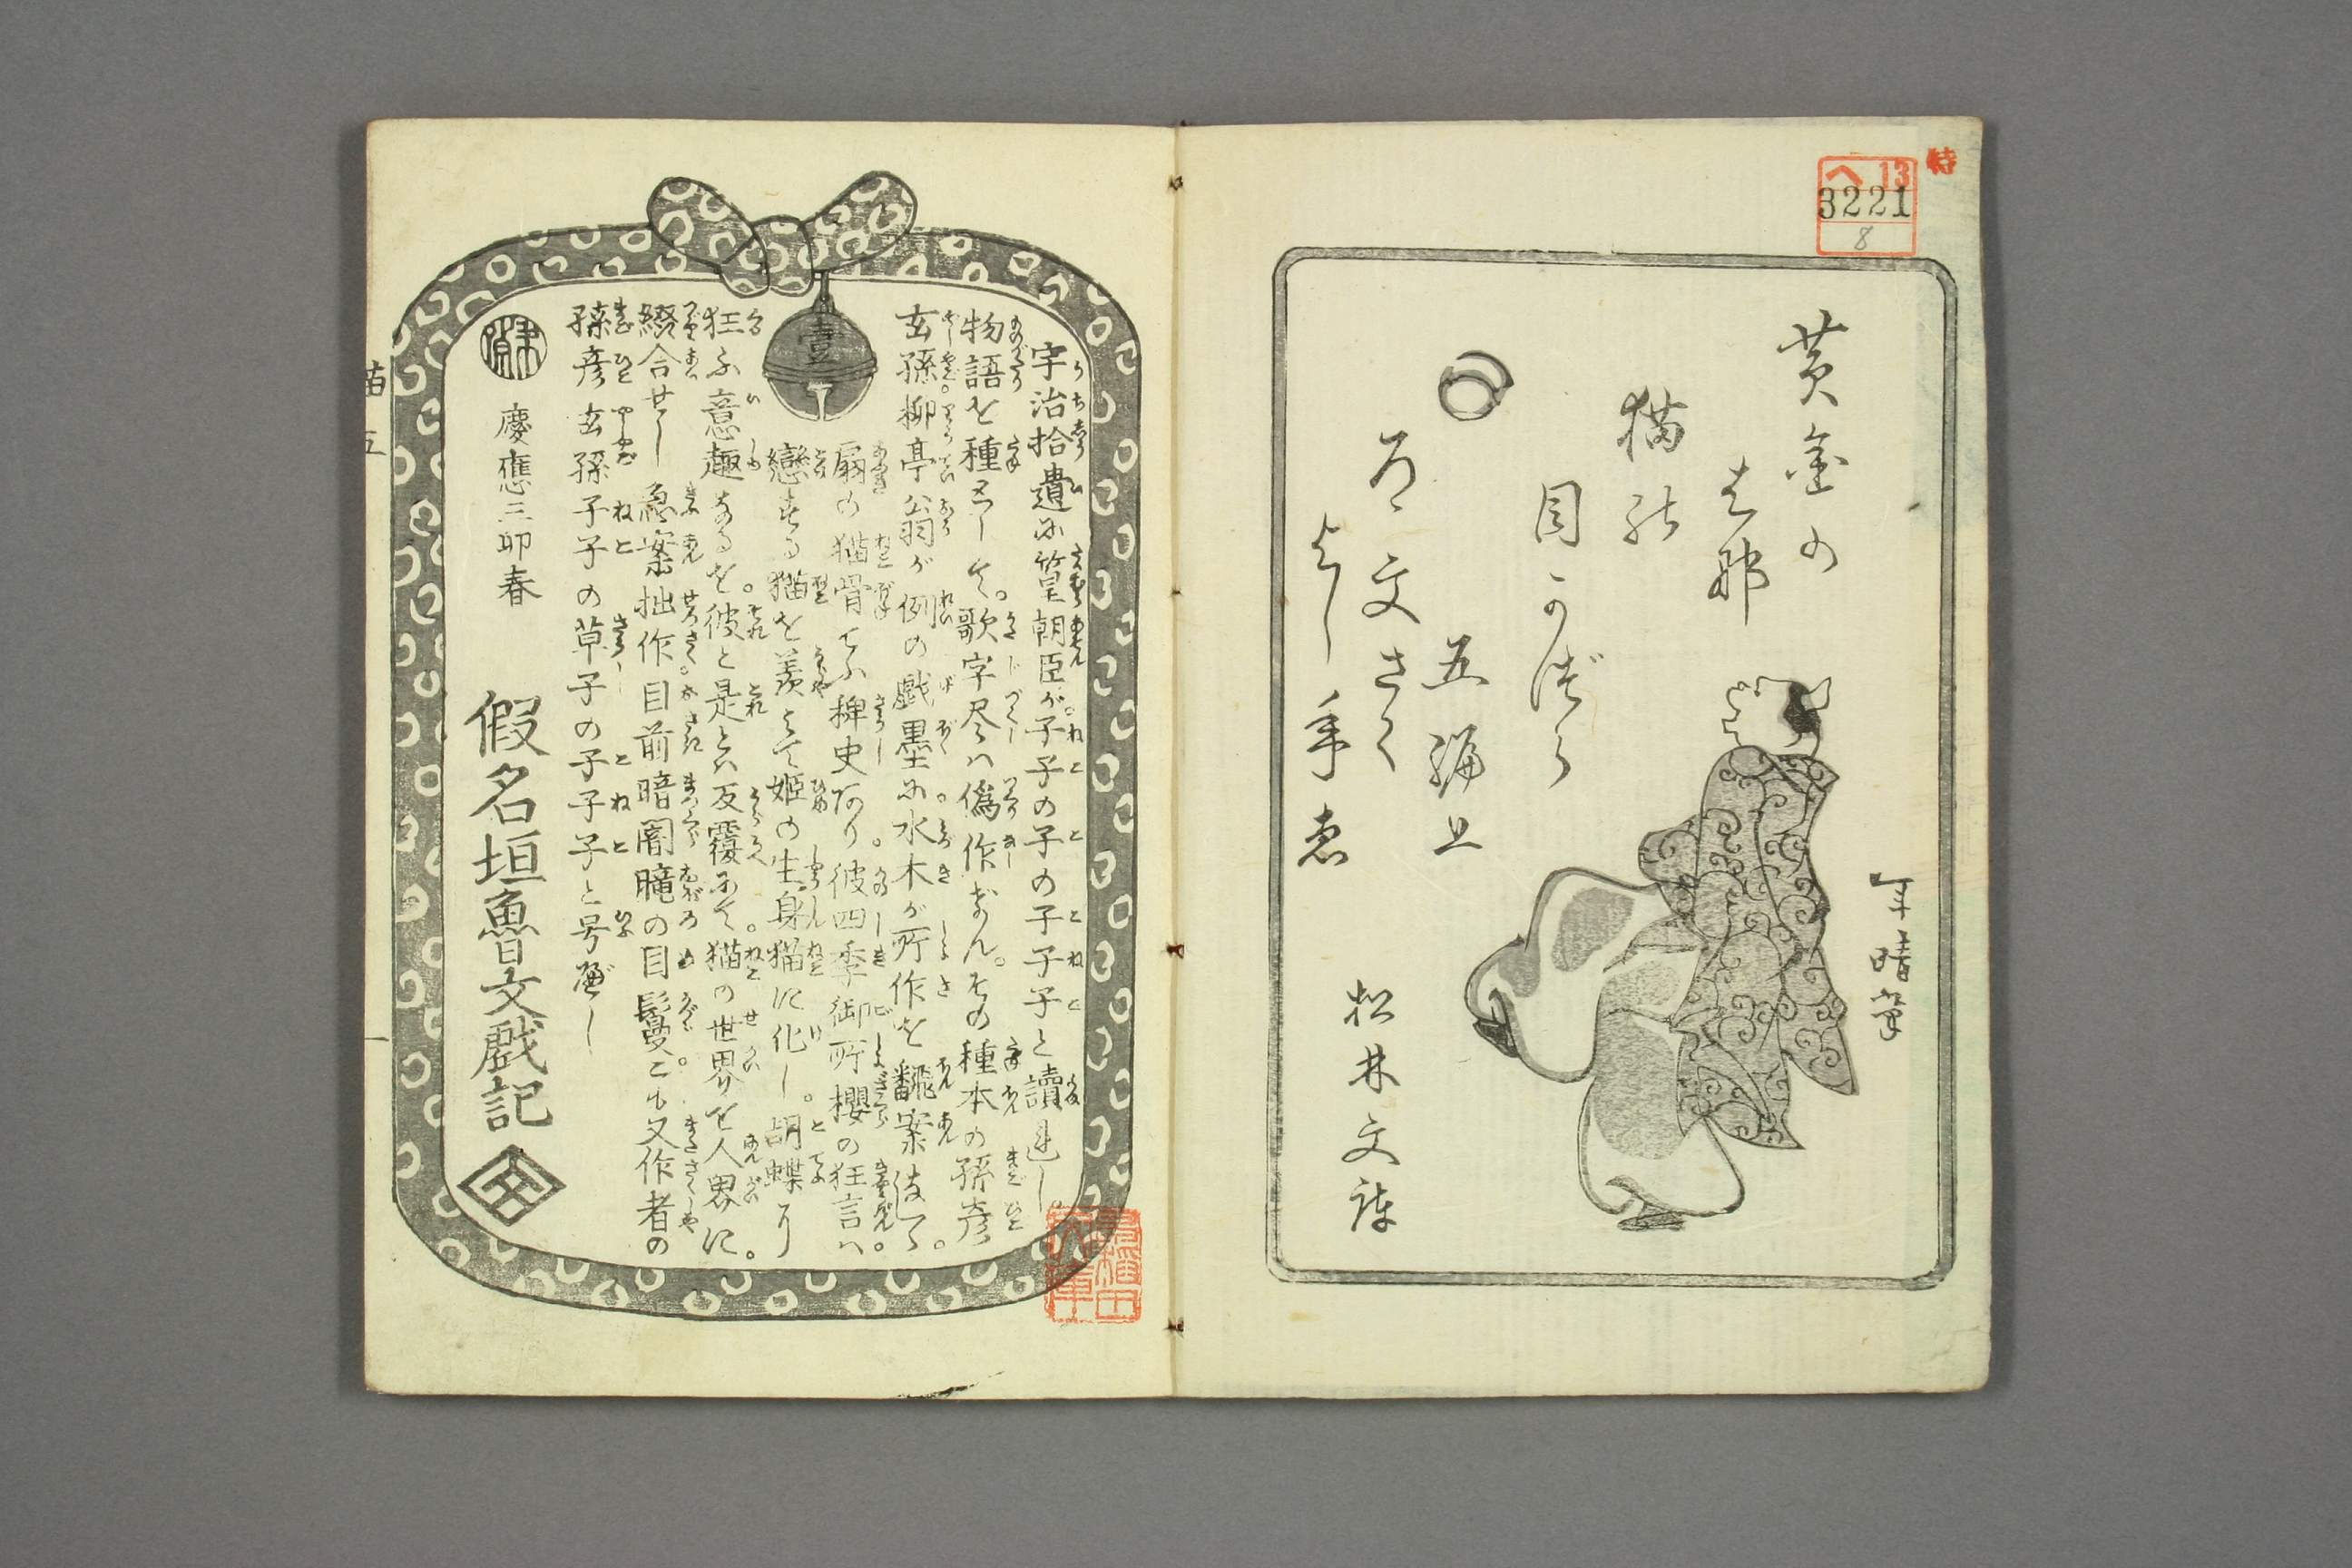 特
ヘ13
3221
8
黄金の
はな
猫の
目かづら
五編上
ろ文さく
よし年ゑ
松林文詠
年晴筆
壹
宇治拾遺に篁朝臣が。子子の子の子子子と讀進し。
物語を種として。歌字尽は偽作ならん。その種本の孫彦
玄孫柳亭翁が例の戯墨に。水木が所作を翻案なして。
扇の猫骨てふ稗史あり。彼四季御所櫻の狂言ハ。
戀する猫を羨みて姫の生身猫に化し。胡蝶に
狂ふ意趣なるを。彼と是とハ反覆にて。猫の世界を人界に。
綴合せし急案拙作。目前暗闇朧の目鬘。こも又作者の
孫彦玄孫子子の草子の子子子と号べし
慶應三卯春
假名垣魯文戯記
猫五
一